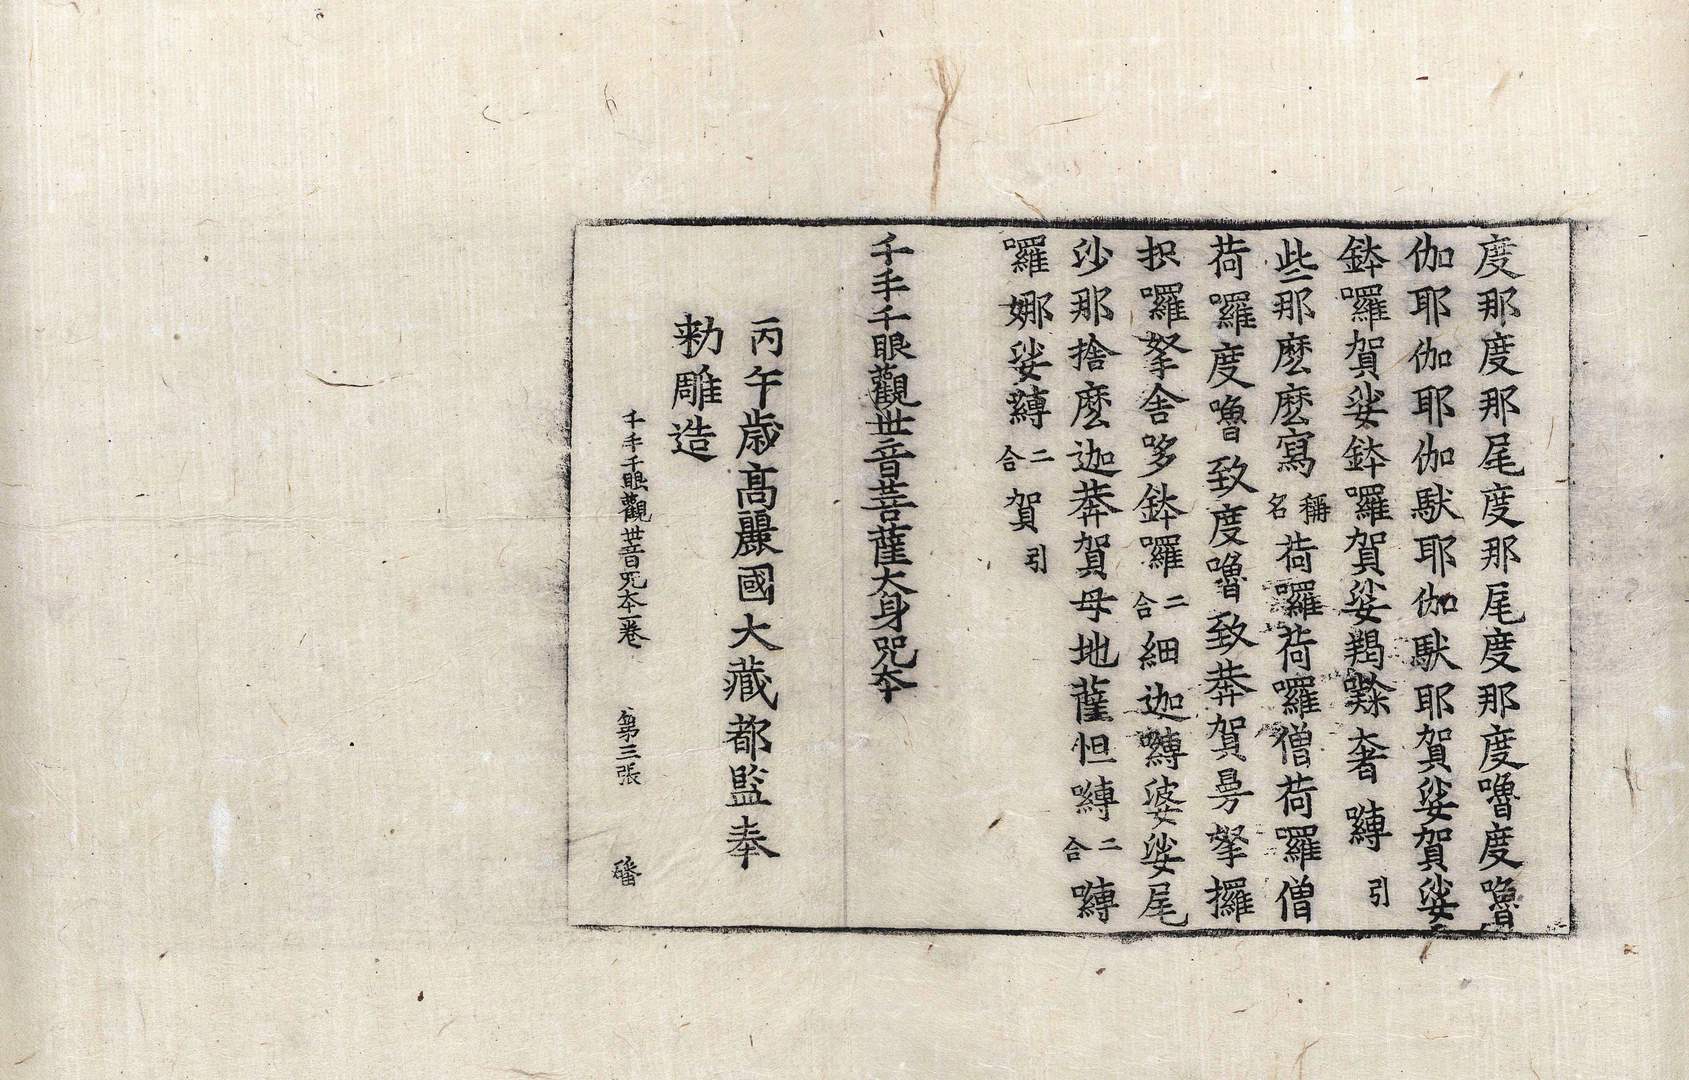 度那度那尾度那尾度那度嚕度嚕
伽耶伽耶伽馱耶伽馱耶賀娑賀娑
鉢囉賀娑鉢囉賀娑羯奢嚩引
些那麽麽寫稱名荷囉荷囉僧荷囉僧
荷囉度嚕致度嚕致莾賀曼拏攞
枳囉拏舍哆鉢囉二合細迦嚩婆娑尾
沙那捨麽迦莾賀母地薩怛嚩二合嚩
囉娜娑嚩二合賀引
千手千眼觀世音菩薩大身咒本
丙午歲高麗國大藏都監奉
勑雕造
千手千眼觀世音咒本一卷 第三張